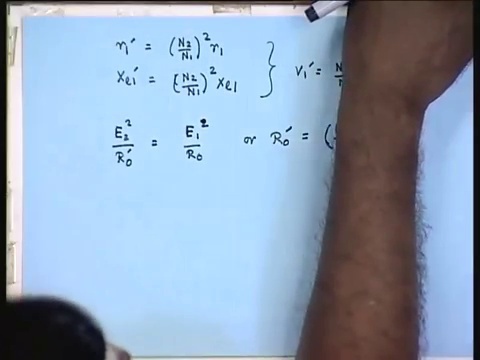 r₁' = (N₂/N₁)² r₁
xₑ₁' = (N₂/N₁)² xₑ₁ } V₁' = N
E₂²/R₀' = E₁²/R₀ or R₀' = (